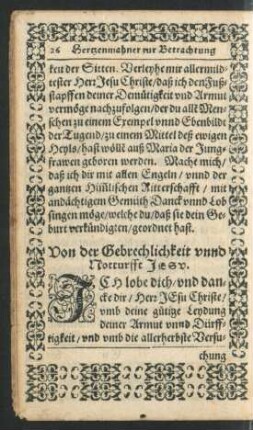 26 Hertzenmahner zur Betrachtung
ken der Sitten. Verleyhe mir allermild-
tester Herr Jesu Christe/ daß ich den Fuß-
stapffen deiner Demütigkeit vnd Armut
vermöge nachzufolgen/ der du alle Men-
schen zu einem Exempel vnnd Ebenbilde
der Tugend/ zu einem Mittel deß ewigen
Heyls/ hast wöllē auß Maria der Jung-
frawen geboren werden. Mache mich/
daß ich dir mit allen Engeln / vnnd der
gantzen Himlischen Ritterschafft / mit
andächtigem Gemüth Danck vnnd Lob-
singen möge/ welche du/ daß sie dein Ge-
burt verkündigten/ geordnet hast.
Von der Gebrechlichkeit vnnd
Notturfft Jesv.
ICH lobe dich/ vnd dan-
cke dir / Herr JEsu Christe/
vmb deine gütige Leydung
deiner Armut vnnd Dürff-
tigkeit/ vnd vmb die allerherbste Versu-
chung